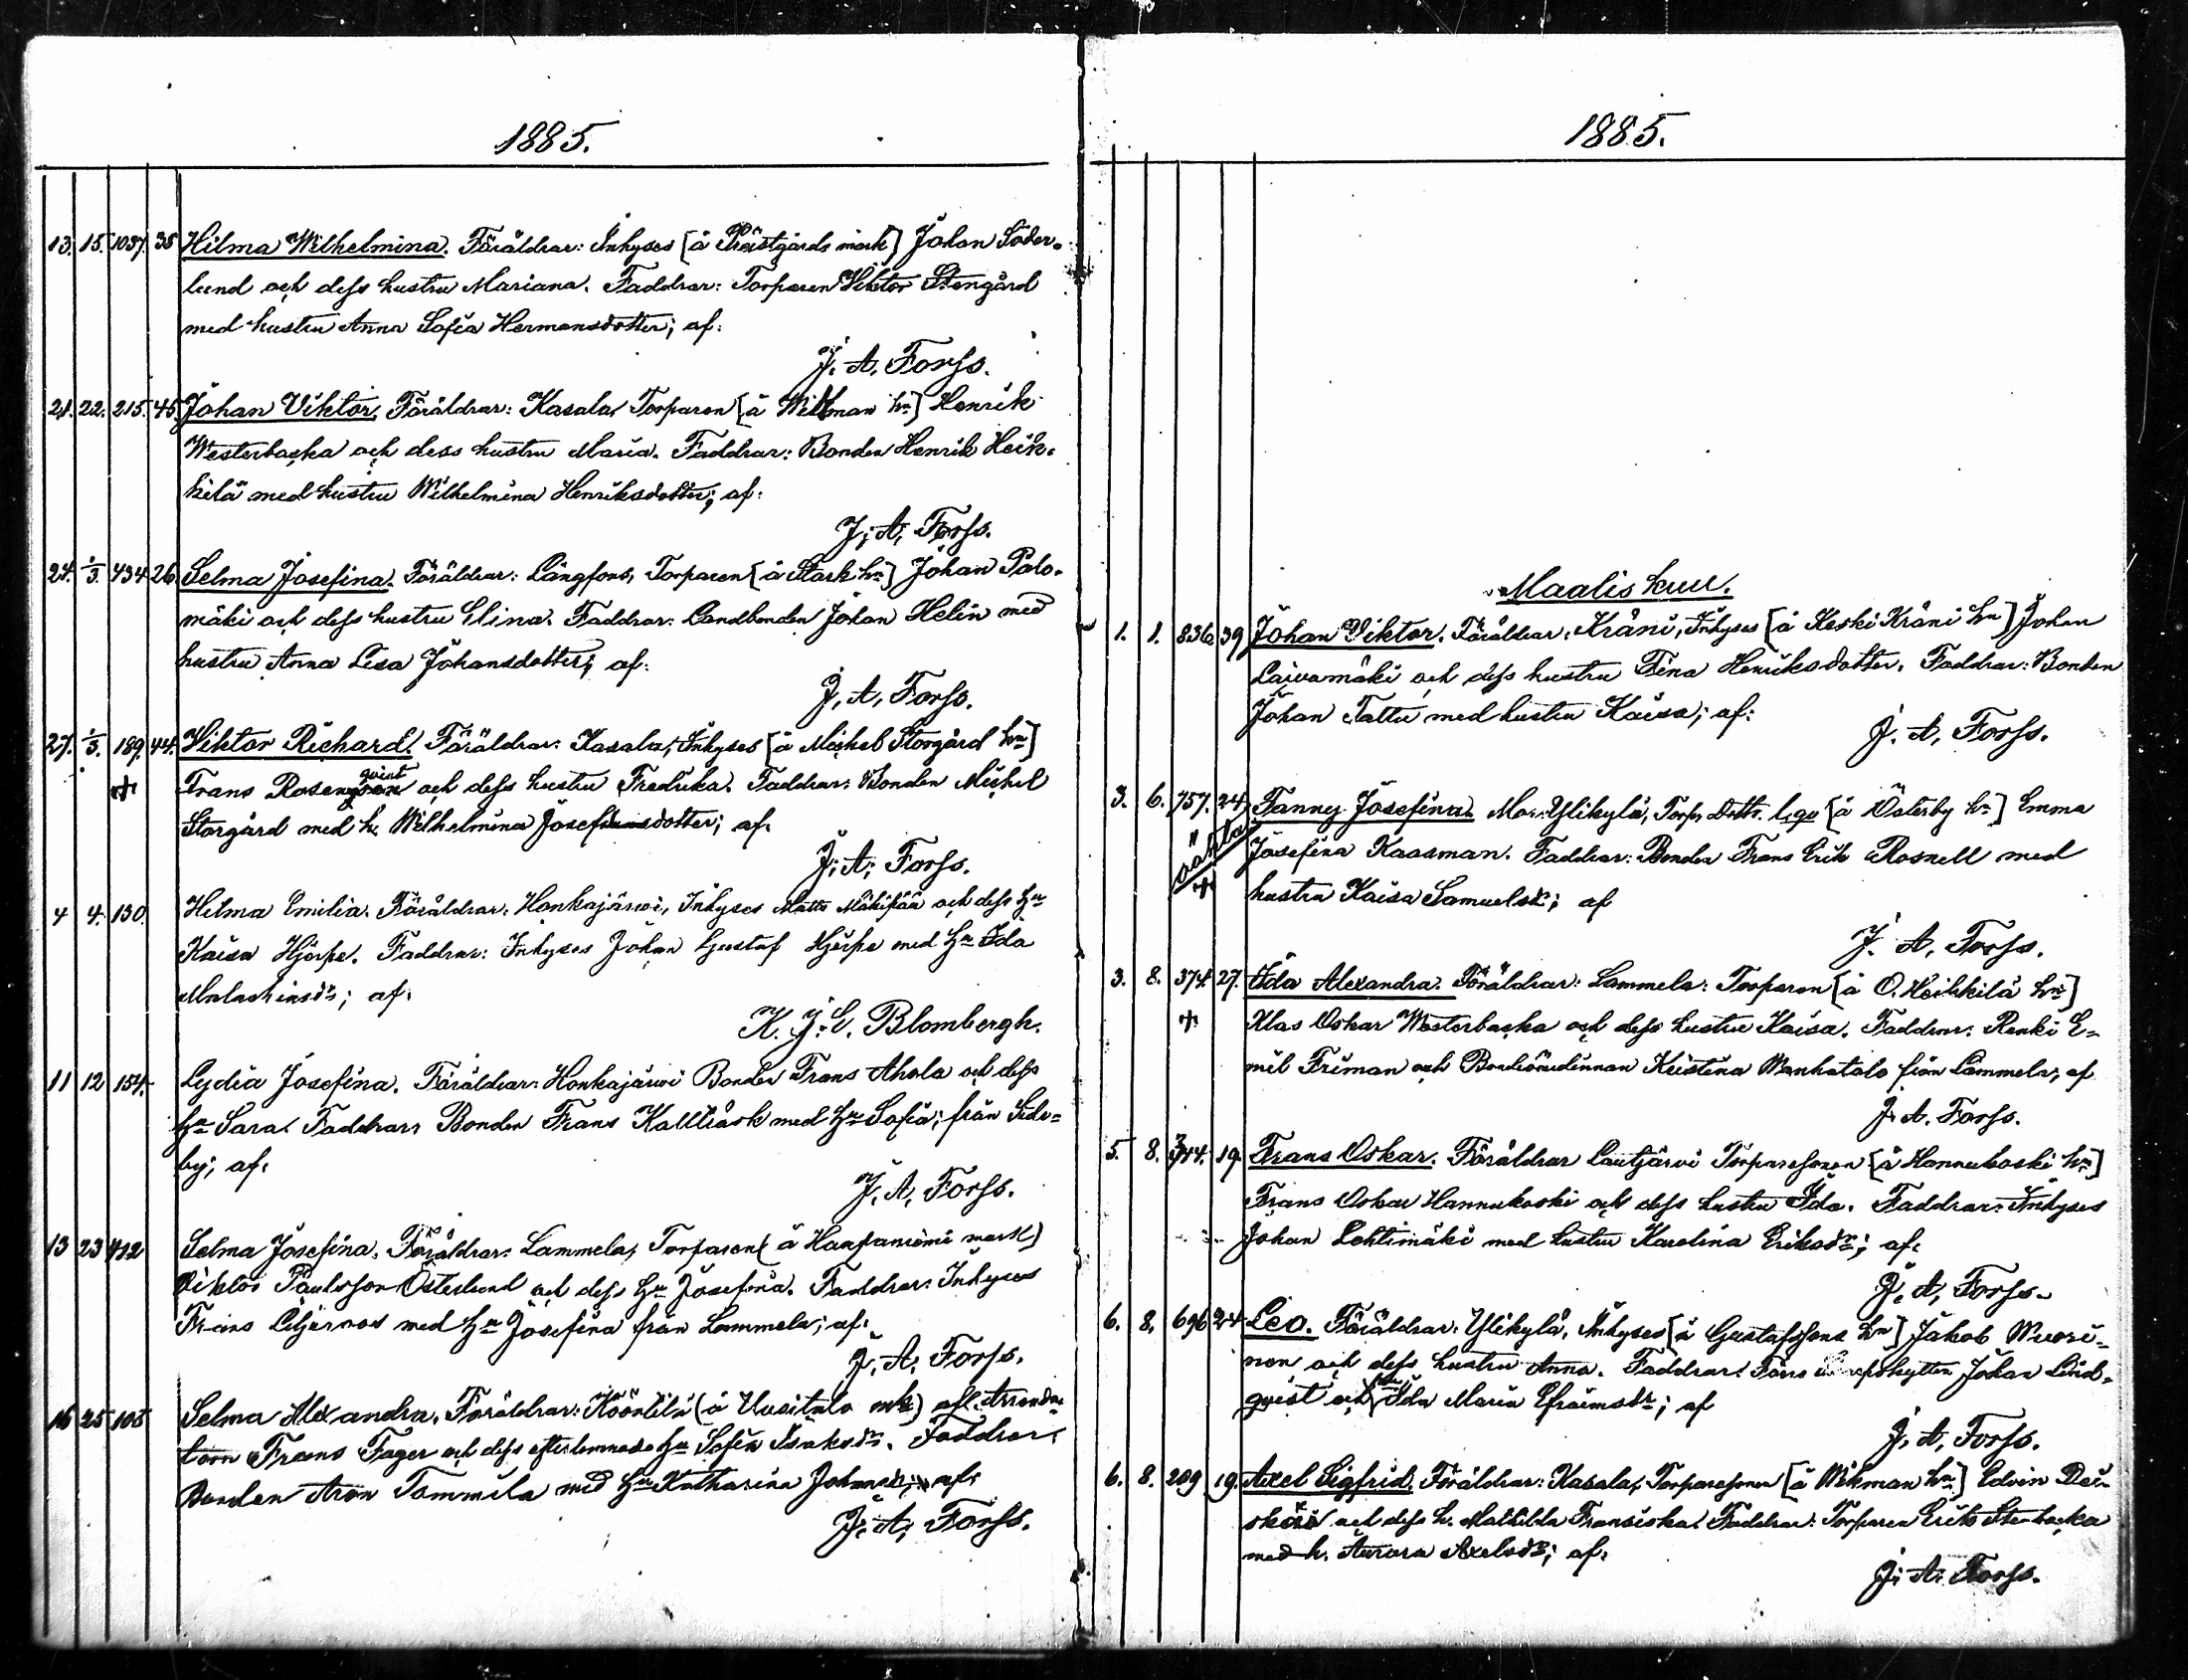 1885.
13. 15. 1037. 35 Hilma Wilhelmina. Föräldrar: Inhyses [å Prästgårds mark] Johan Söder-
lund och dess hustru Mariana. Faddrar: Torparen Viktor Stengård
med hustru Anna Sofia Hermansdotter; af:
J. A. Forss.
21. 22. 215. 45 Johan Viktor. Föräldrar: Kasala, Torparen [å Wikman hn] Henrik
Westerbacka och dess hustru Maria. Faddrar: Bonden Henrik Heik-
kilä med hustru Wilhelmina Henriksdotter; af:
J. A. Forss.
24. 1/3. 434 26 Selma Josefina. Föräldrar: Långfors, Torparen [å Stark hn] Johan Palo-
mäki och dess hustru Elina. Faddrar: Landbonden Johan Helin med
hustru Anna Lisa Johansdotter; af:
J. A. Forss.
27. 1/3. 189. 44. Viktor Richard. Föräldrar: Kasala, Inhyses [å Michel Storgård hn]
Frans Rosenqvist och dess hustru Fredrika. Faddrar: Bonden Michel
Storgård med h. Wilhelmina Josefsdotter; af.
J. A. Forss.
4 4. 130. Hilma Emilia. Föräldrar: Honkajärwi, Inhyses Matts Mäkipää och dess Hu
Kaisa Hjerpe. Faddrar: Inhyses Johan Gustaf Hjerpe med Hu Ida
Malachiasdr; af:
K. J. E. Blombergh.
11 12 154. Lydia Josefina. Föräldrar: Honkajärwi Bonden Frans Ahola och dess
Hu Sara. Faddrar: Bonden Frans Kallträsk med Hu Sofia; från Side-
by; af:
J. A. Forss.
13 23 412 Selma Josefina. Föräldrar: Lammela, Torparen (å Haapaniemi mark)
Viktor Paulsson Österlund och dess Hu Josefina. Faddrar: Inhyses
Frans Liljeroos med Hu Josefina från Lammela; af:
J. A. Forss.
16 25 105 Selma Alexandra. Föräldrar: Köörtilä (å Uusitalo mk) afl. Arrenda-
torn Frans Fager och dess efterlemnade Hu Sofia Isaksdr. Faddrar:
Bonden Aron Tommila med Hu Katharina Johansdr; af:
J. A. Forss.
1885.
Maaliskuu.
1. 1. 836 39 Johan Viktor. Föräldrar: Kråni, Inhyses [å Keski Kråni hn] Johan
Laivamäki och dess hustru Fina Henriksdotter. Faddrar: Bonden
Johan Tattu med hustru Kaisa; af:
J. A. Forss.
3. 6. 757. 24. Fanny Josefina. Mor: Ylikylä, Torps Dottr. l.qv. [å Österby hn] Emma
oäkta Josefina Kaasman. Faddrar: Bonden Frans Erik Rosnell med
hustru Kaisa Samuelsdr; af
J. A. Forss.
3. 8. 374. 27. Ida Alexandra. Föräldrar: Lammela: Torparen [å O. Heikkilä hn]
Klas Oskar Westerbacka och dess hustru Kaisa. Faddrar: Renki E-
mil Friman och Bondeänkan Kristina Wanhatalo från Lammela; af
J. A. Forss.
5. 8. 344. 19. Frans Oskar. Föräldrar Lautjärvi Torparesonen [å Hannukoski hn]
Frans Oskar Hannukoski och dess hustru Ida. Faddrar: Inhyses
Johan Lehtimäki med hustru Karolina Eriksdr; af:
J. A. Forss.
6. 8. 696 24 Leo. Föräldrar: Ylikylä, Inhyses [å Gustafssons hn] Jakob Wuori-
nen och dess hustru Anna. Faddrar: Johan Lind-
qvist och Ida Maria Efraimsdr; af
J. A. Forss.
6. 8. 209 19. Axel Sigfrid. Föräldrar: Kasala, Torparesonen [å Wikman hn] Edvin
och dess h. Mathilda Fransiska. Faddrar: Torparen Erik Stenbacka
med h. Aurora Axelsdr; af:
J. A. Forss.